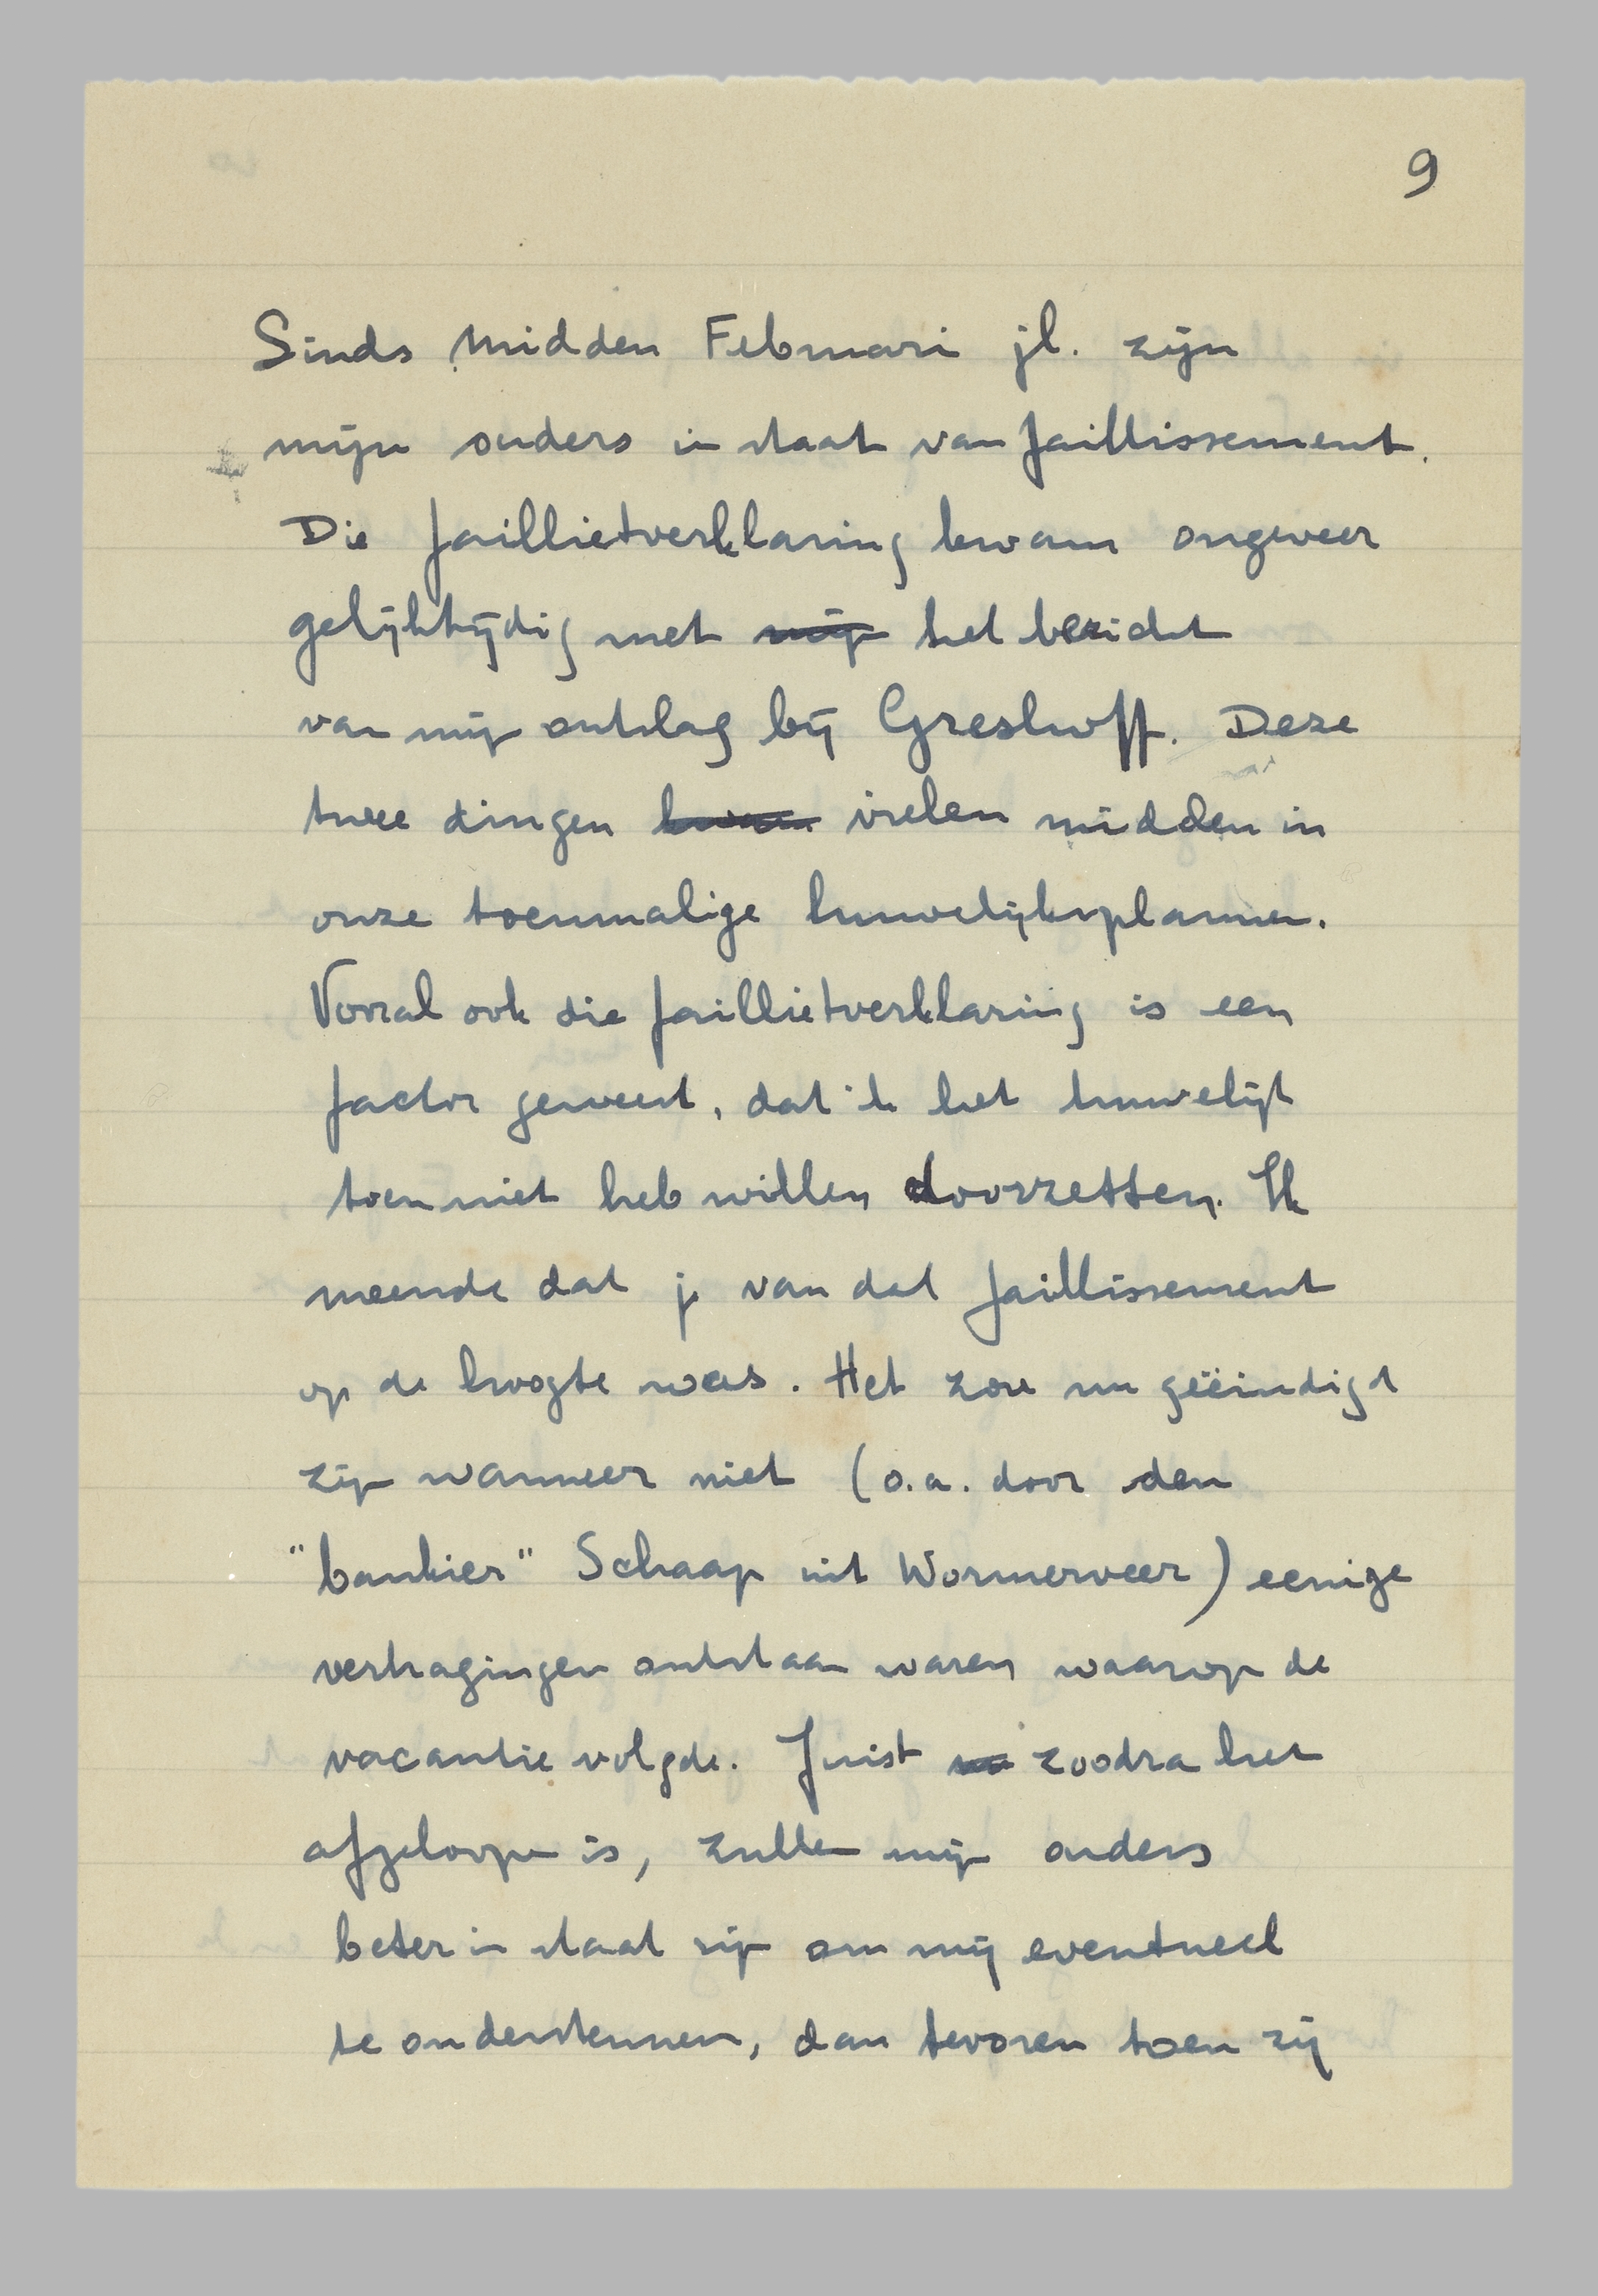 9
Sinds midden Februari jl. zijn
mijn ouders in staat van faillissement.
Die faillietverklaring kwam ongeveer
gelijktijdig met mijn het bericht
van mijn ontslag bij Greshoff. Deze
twee dingen kwam vielen midden in
onze toenmalige huwelijksplannen.
Vooral ook die faillietverklaring is een
factor geweest, dat 'k het huwelijk
toen niet heb willen doorzetten. Ik
meende dat je van dat faillissement
op de hoogte was. Het zou nu geëindigd
zijn wanneer niet (o.a. door den
"bankier" Schaap uit Wormerveer) eenige
vertragingen ontstaan waren waarop de
vacantie volgde. Juist zoodra het
afgeloopen is, zullen mijn ouders
beter in staat zijn om mij eventueel
te ondersteunen, dan tevoren toen zij